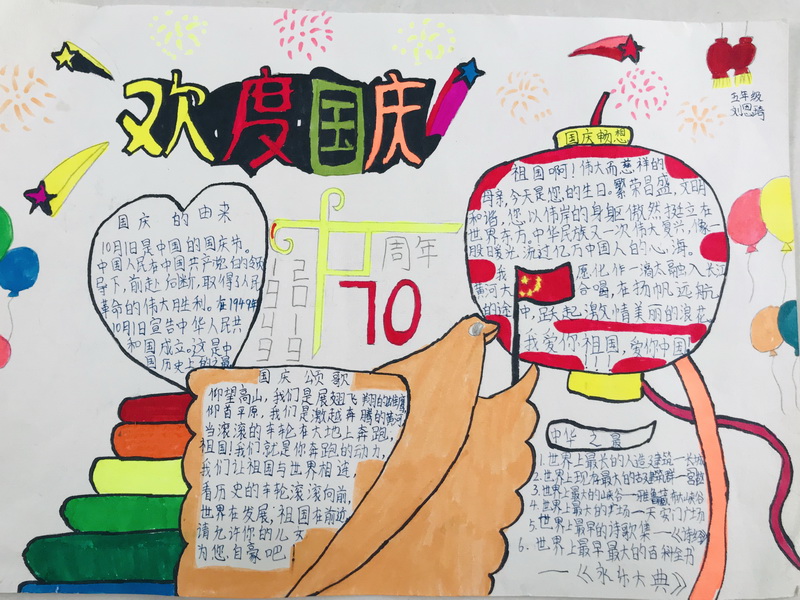 欢度国庆
五年级
刘思琦
国庆的由来
10月1日是中国的国庆节。
中国人民在中国共产党的领
导下,前赴后继,取得了人民
革命的伟大胜利。在1949年
10月1日宣告中华人民共
和国成立。这是中
国历史上的
1949
2019
周年
70
国庆畅想
祖国啊!伟大而慈祥的
母亲,今天是您的生日。繁荣昌盛,文明
和谐,您以伟岸的身躯傲然挺立在
世界东方。中华民族又一次伟大复兴,像
股暖流,流过亿万中国人的心海。
我 愿化作一滴水融入长江
黄河大 合唱,在扬帆远航
的途中,跃起激情美丽的浪花
我爱你!祖国,爱你中国
国庆颂歌
仰望高山,我们是展翅飞翔的雄鹰
俯首平原,我们是激越奔腾的黄河
当滚滚的车轮在大地上奔跑,
祖国!我们就是你奔跑的动力,
我们让祖国与世界相连
看历史的车轮滚滚向前,
世界在发展,祖国在前进
请允许你的儿女
为您自豪吧!
中华之最
1.世界上最长的人造建筑—长城
2.世界上现存最大的古建筑群—故宫
3.世界上最大的峡谷—雅鲁藏布大峡谷
4.世界上最大的广场—天安门广场
5.世界上最早的诗歌集—《诗经》
6.世界上最早最大的百科全书
—《永乐大典》